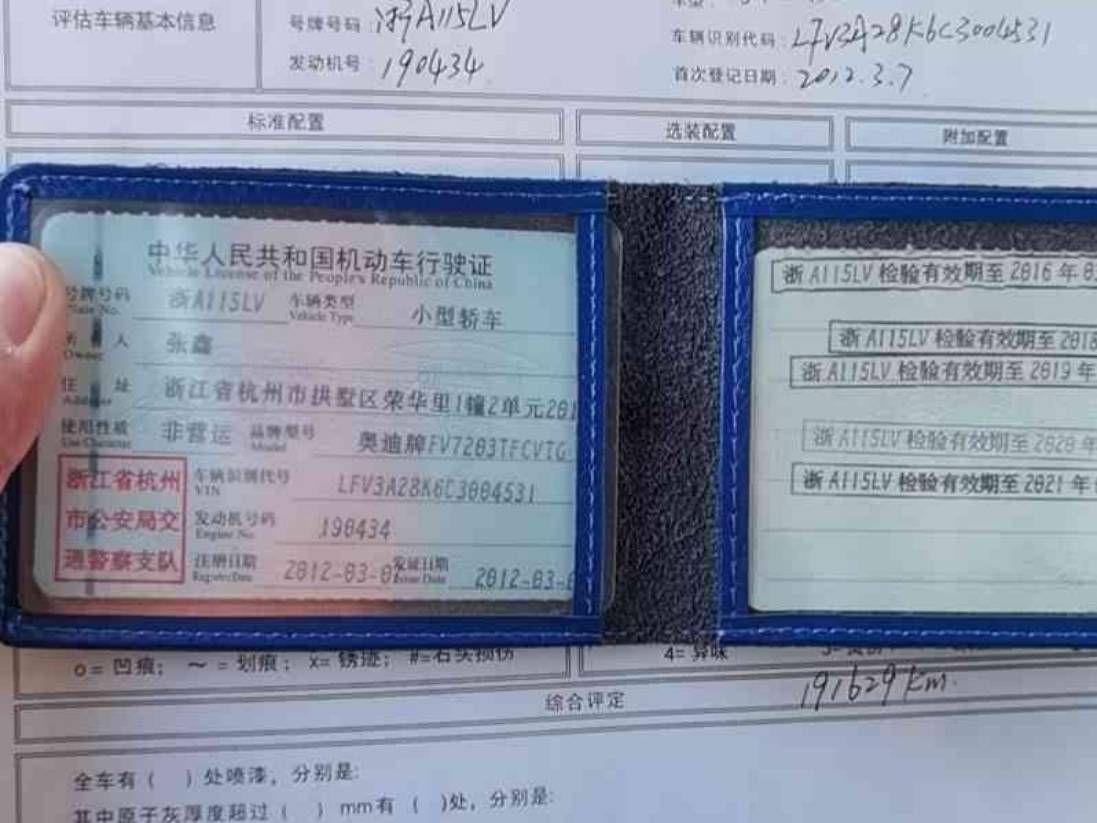 评估车辆基本信息
号牌号码: 浙A115LV
车辆识别代码: LFV3A28K6C3004531
发动机号: 190434
首次登记日期: 2012.3.7
标准配置
选装配置
附加配置
中华人民共和国机动车行驶证
Vehicle License of the People's Republic of China
号牌号码 浙A115LV 车辆类型 小型轿车
Plate No. Vehicle Type
人 张鑫
Owner
住 址 浙江省杭州市拱墅区荣华里1幢2单元201
Address
使用性质 非营运 品牌型号 奥迪牌FV7203TFCVTG
Use Character Model
浙江省杭州
市公安局交
通警察支队
车辆识别代号 LFV3A28K6C3004531
VIN
发动机号码 190434
Engine No.
注册日期 2012-03-0 发证日期 2012-03-
Register Date Issue Date
浙A115LV 检验有效期至 2016 年 0
浙A115LV 检验有效期至 2018
浙A115LV 检验有效期至 2019 年
浙A115LV 检验有效期至 2020 年
浙A115LV 检验有效期至 2021 年
o= 凹痕; ~ = 划痕; x= 锈迹; #=石头损伤
4= 异味
191629 km.
综合评定
全车有 ( ) 处喷漆, 分别是:
其中原子灰厚度超过 ( ) mm 有 ( )处, 分别是: